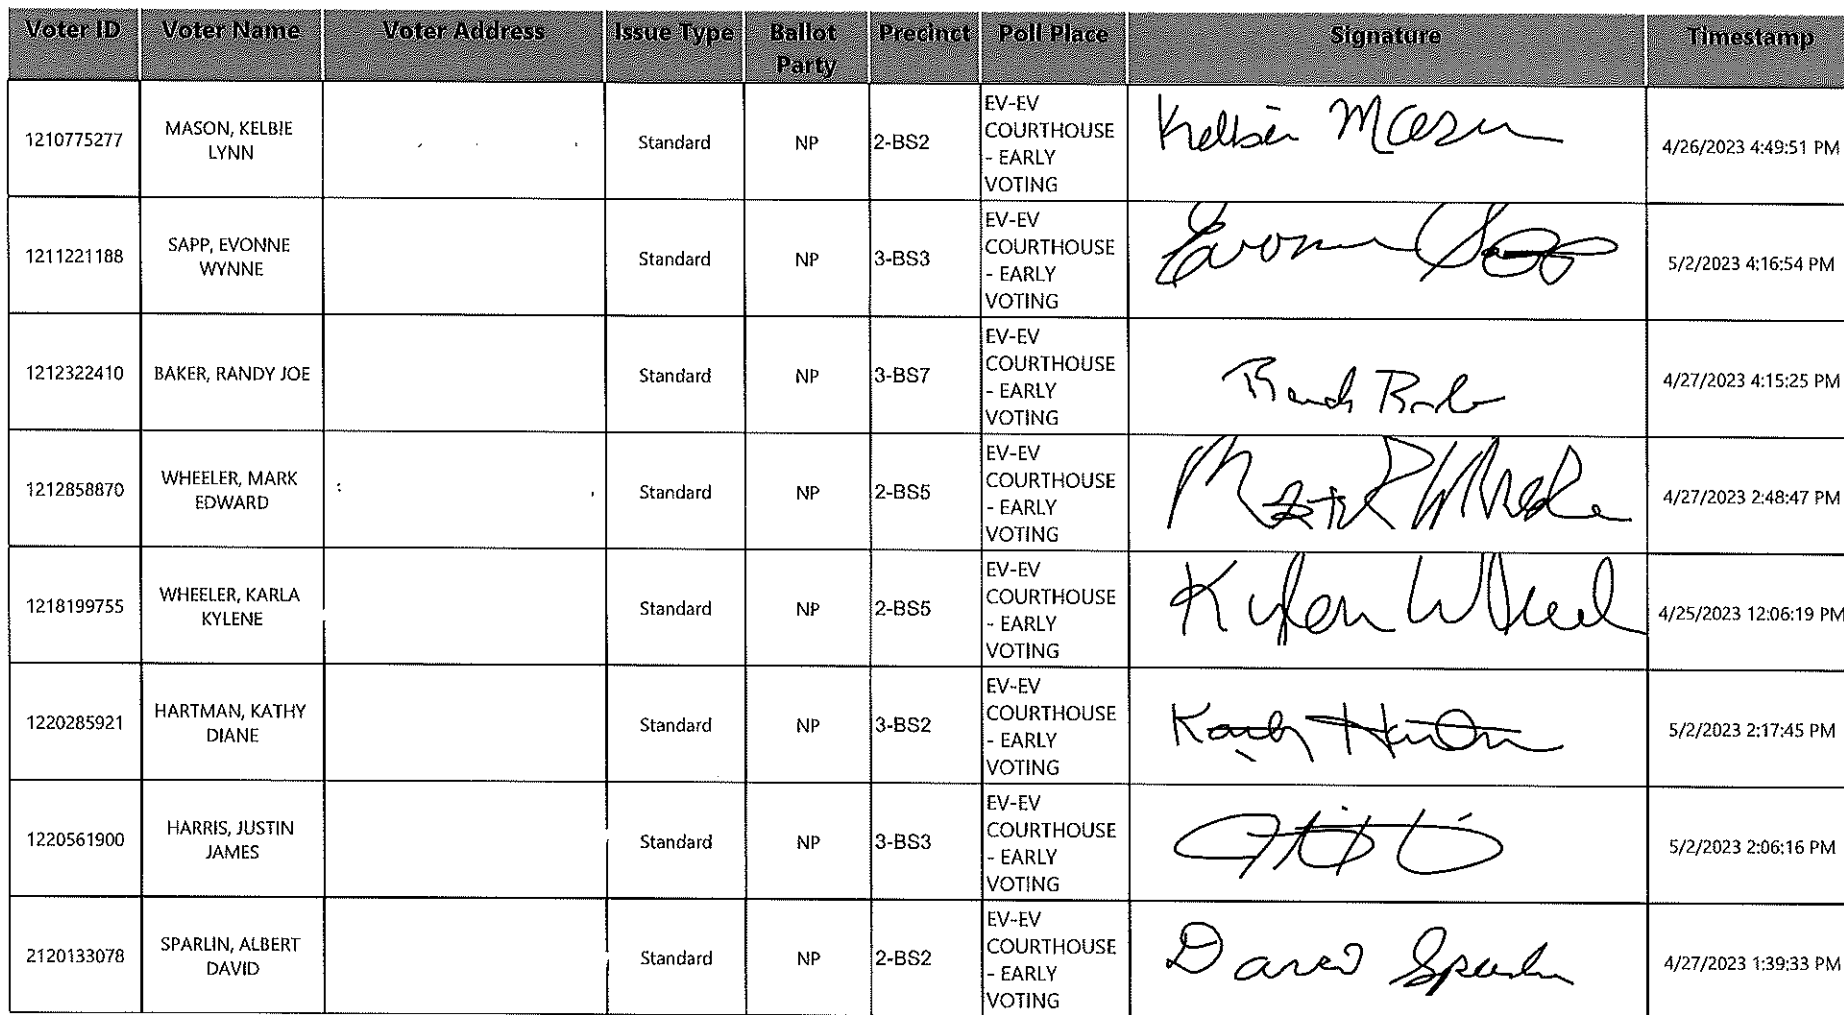 Voter ID Voter Name Voter Address Issue Type Ballot Party Precinct Poll Place Signature Timestamp
1210775277 MASON, KELBIE LYNN Standard NP 2-BS2 EV-EV COURTHOUSE - EARLY VOTING Kelbie Mason 4/26/2023 4:49:51 PM
1211221188 SAPP, EVONNE WYNNE Standard NP 3-BS3 EV-EV COURTHOUSE - EARLY VOTING Evonne Sapp 5/2/2023 4:16:54 PM
1212322410 BAKER, RANDY JOE Standard NP 3-BS7 EV-EV COURTHOUSE - EARLY VOTING 4/27/2023 4:15:25 PM
1212858870 WHEELER, MARK EDWARD Standard NP 2-BS5 EV-EV COURTHOUSE - EARLY VOTING Mark Wheeler 4/27/2023 2:48:47 PM
1218199755 WHEELER, KARLA KYLENE Standard NP 2-BS5 EV-EV COURTHOUSE - EARLY VOTING 4/25/2023 12:06:19 PM
1220285921 HARTMAN, KATHY DIANE Standard NP 3-BS2 EV-EV COURTHOUSE - EARLY VOTING 5/2/2023 2:17:45 PM
1220561900 HARRIS, JUSTIN JAMES Standard NP 3-BS3 EV-EV COURTHOUSE - EARLY VOTING 5/2/2023 2:06:16 PM
2120133078 SPARLIN, ALBERT DAVID Standard NP 2-BS2 EV-EV COURTHOUSE - EARLY VOTING David Sparlin 4/27/2023 1:39:33 PM